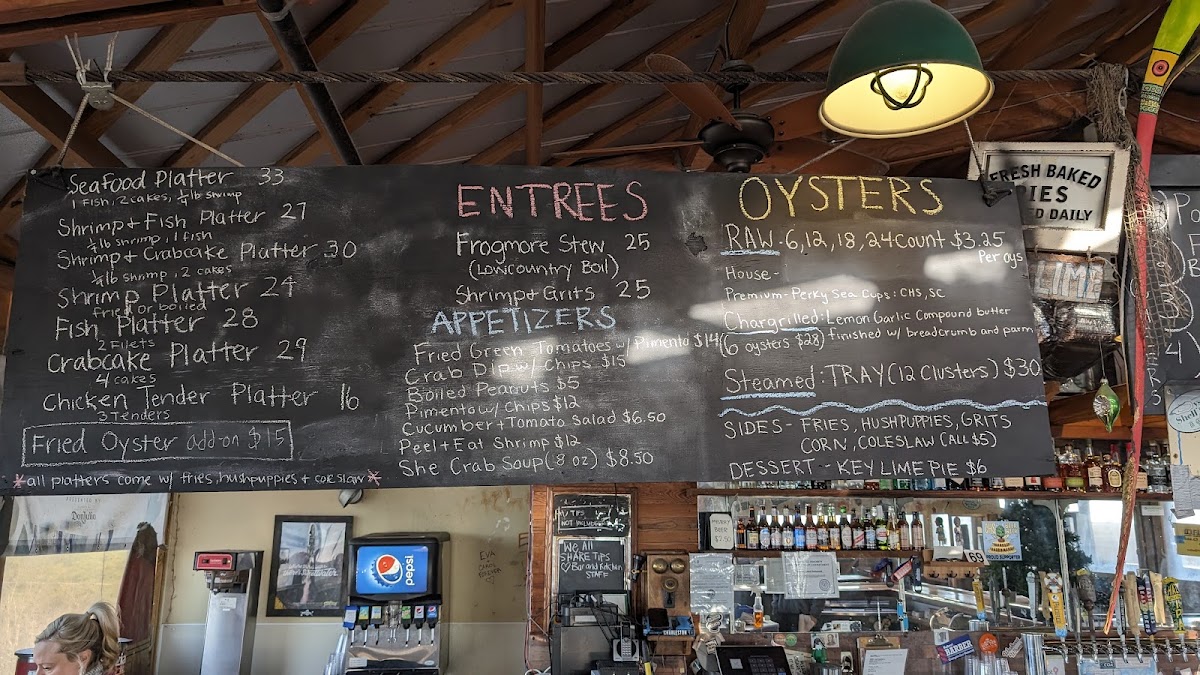 Seafood Platter 33
1 Fish, 2 cakes, 1/4 lb shrimp
Shrimp + Fish Platter 27
1/4 lb shrimp, 1 fish
Shrimp + Crabcake Platter 30
1/4 lb shrimp, 2 cakes
Shrimp Platter 24
fried or boiled
Fish Platter 28
2 Filets
Crabcake Platter 29
4 cakes
Chicken Tender Platter 16
3 Tenders
Fried Oyster add-on $15
*all platters come w/ fries, hushpuppies + coleslaw*
ENTREES
Frogmore Stew 25
(Lowcountry Boil)
Shrimp + Grits 25
APPETIZERS
Fried Green Tomatoes w/ Pimento $14
Crab Dip w/ Chips $15
Boiled Peanuts $5
Pimento w/ Chips $12
Cucumber + Tomato Salad $6.50
Peel + Eat Shrimp $12
She Crab Soup (8 oz) $8.50
OYSTERS
RAW - 6, 12, 18, 24 Count $3.25
Per oys
House -
Premium - Perky Sea Cups: CHS, SC
Chargrilled: Lemon Garlic Compound butter
(6 oysters $28) finished w/ breadcrumb and parm
Steamed: TRAY (12 Clusters) $30
SIDES - FRIES, HUSHPUPPIES, GRITS
CORN, COLESLAW (ALL $5)
DESSERT - KEY LIME PIE $6
FRESH BAKED
IES
D DAILY
pepsi
TIPS
NOT INCLUDED
We All
SHARE TIPS
Bar and Kitchen
STAFF
EVA
BEER
$2.50
69